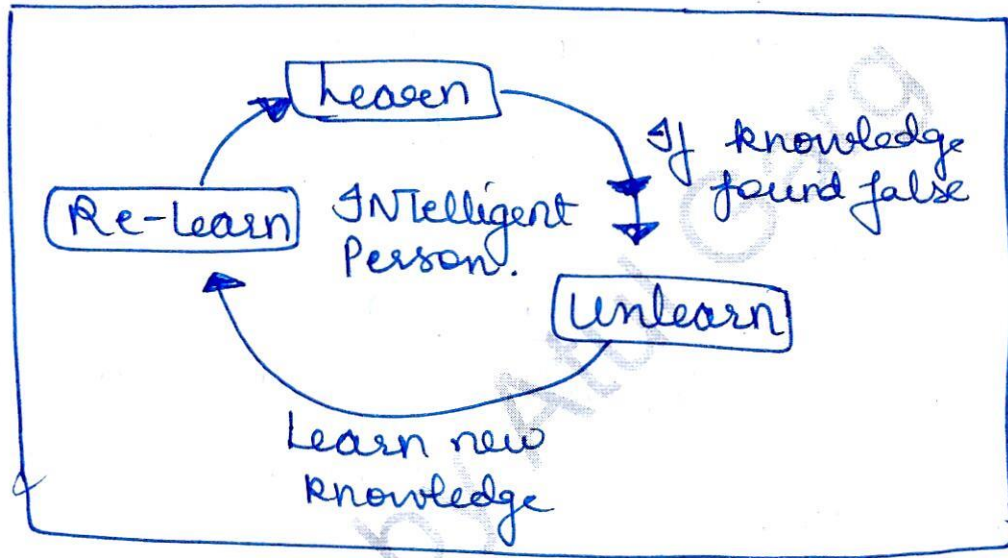 Learn
If knowledge
found false
Re-Learn
INTelligent
Person.
Unlearn
Learn new
knowledge
by Atul Garg